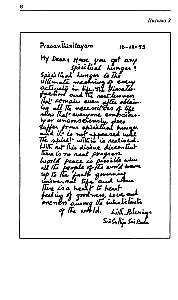 6
Письмо 3
Prasanthinilayam
My Dears! Have you got any
spiritual hunger?
Spiritual hunger is the
ultimate meaning of every
activity in life. The dissatis-
faction and the restlessness
that remains even after obtain-
ing all the necessities of life
shows that everyone conscious-
ly or unconsciously does
suffer from spiritual hunger
and it is not appeased until
the spirit within is realised.
With out this divine discontent
there is no real progress.
World peace is possible when
all the people of the world wake
up to the truth governing
universal life and when
there is a heart to heart
feeling of goodness, love and
oneness among the inhabitants
of the world.
With Blessings
Sri Sathya Sai Baba